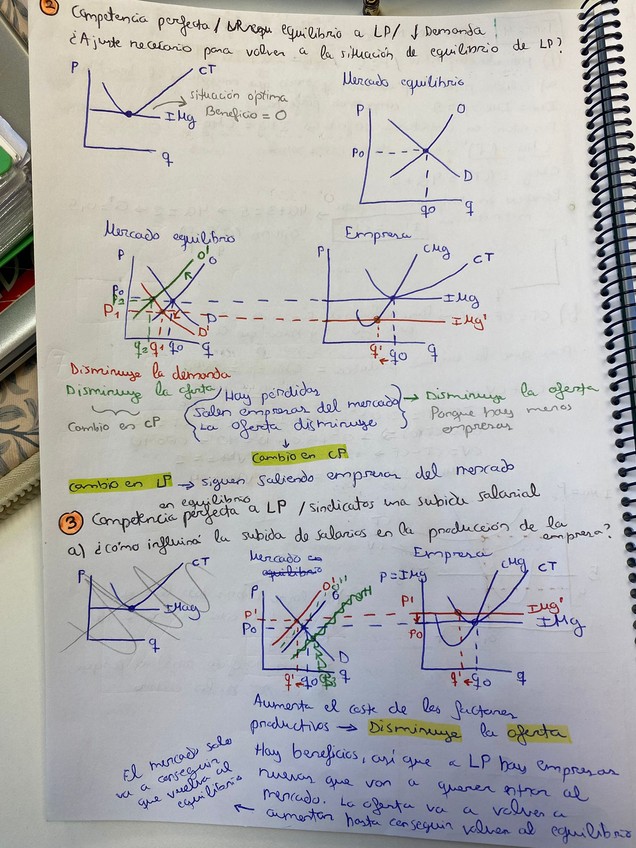 2 Competencia perfecta / equilibrio a LP / ↓ Demanda
¿Ajuste necesario para volver a la situación de equilibrio de LP?
P
CT
situación óptima
Beneficio = 0
IMg
q
Mercado equilibrio
P
O
P0
D
q0
q
Mercado equilibrio
P
O'
O
P0
P2
P1
D
D'
q2 q1 q0 q
Empresa
P
CMg
CT
IMg
IMg'
q' ← q0 q
Disminuye la demanda
Disminuye la oferta
Cambio en CP
Hay pérdidas
Salen empresas del mercado
La oferta disminuye
→ Disminuye la oferta
Porque hay menos
empresas
↓
Cambio en CP
Cambio en LP → siguen saliendo empresas del mercado
en equilibrio
3 Competencia perfecta a LP / sindicatos una subida salarial
a) ¿cómo influirá la subida de salarios en la producción de la
empresa?
CT
IMag
q
Mercado en
equilibrio
P
O'
O''
O
P'
P0
D
q' ← q0
q
Empresa
P = IMg
CMg
CT
P'
P0
IMg'
IMg
q' ← q0 q
Aumenta el coste de los factores
productivos → Disminuye la oferta
Hay beneficios, así que a LP hay empresas
nuevas que van a querer entrar al
mercado. La oferta va a volver a
← aumentar hasta conseguir volver al equilibrio
El mercado solo
va a conseguir
que vuelva al
equilibrio